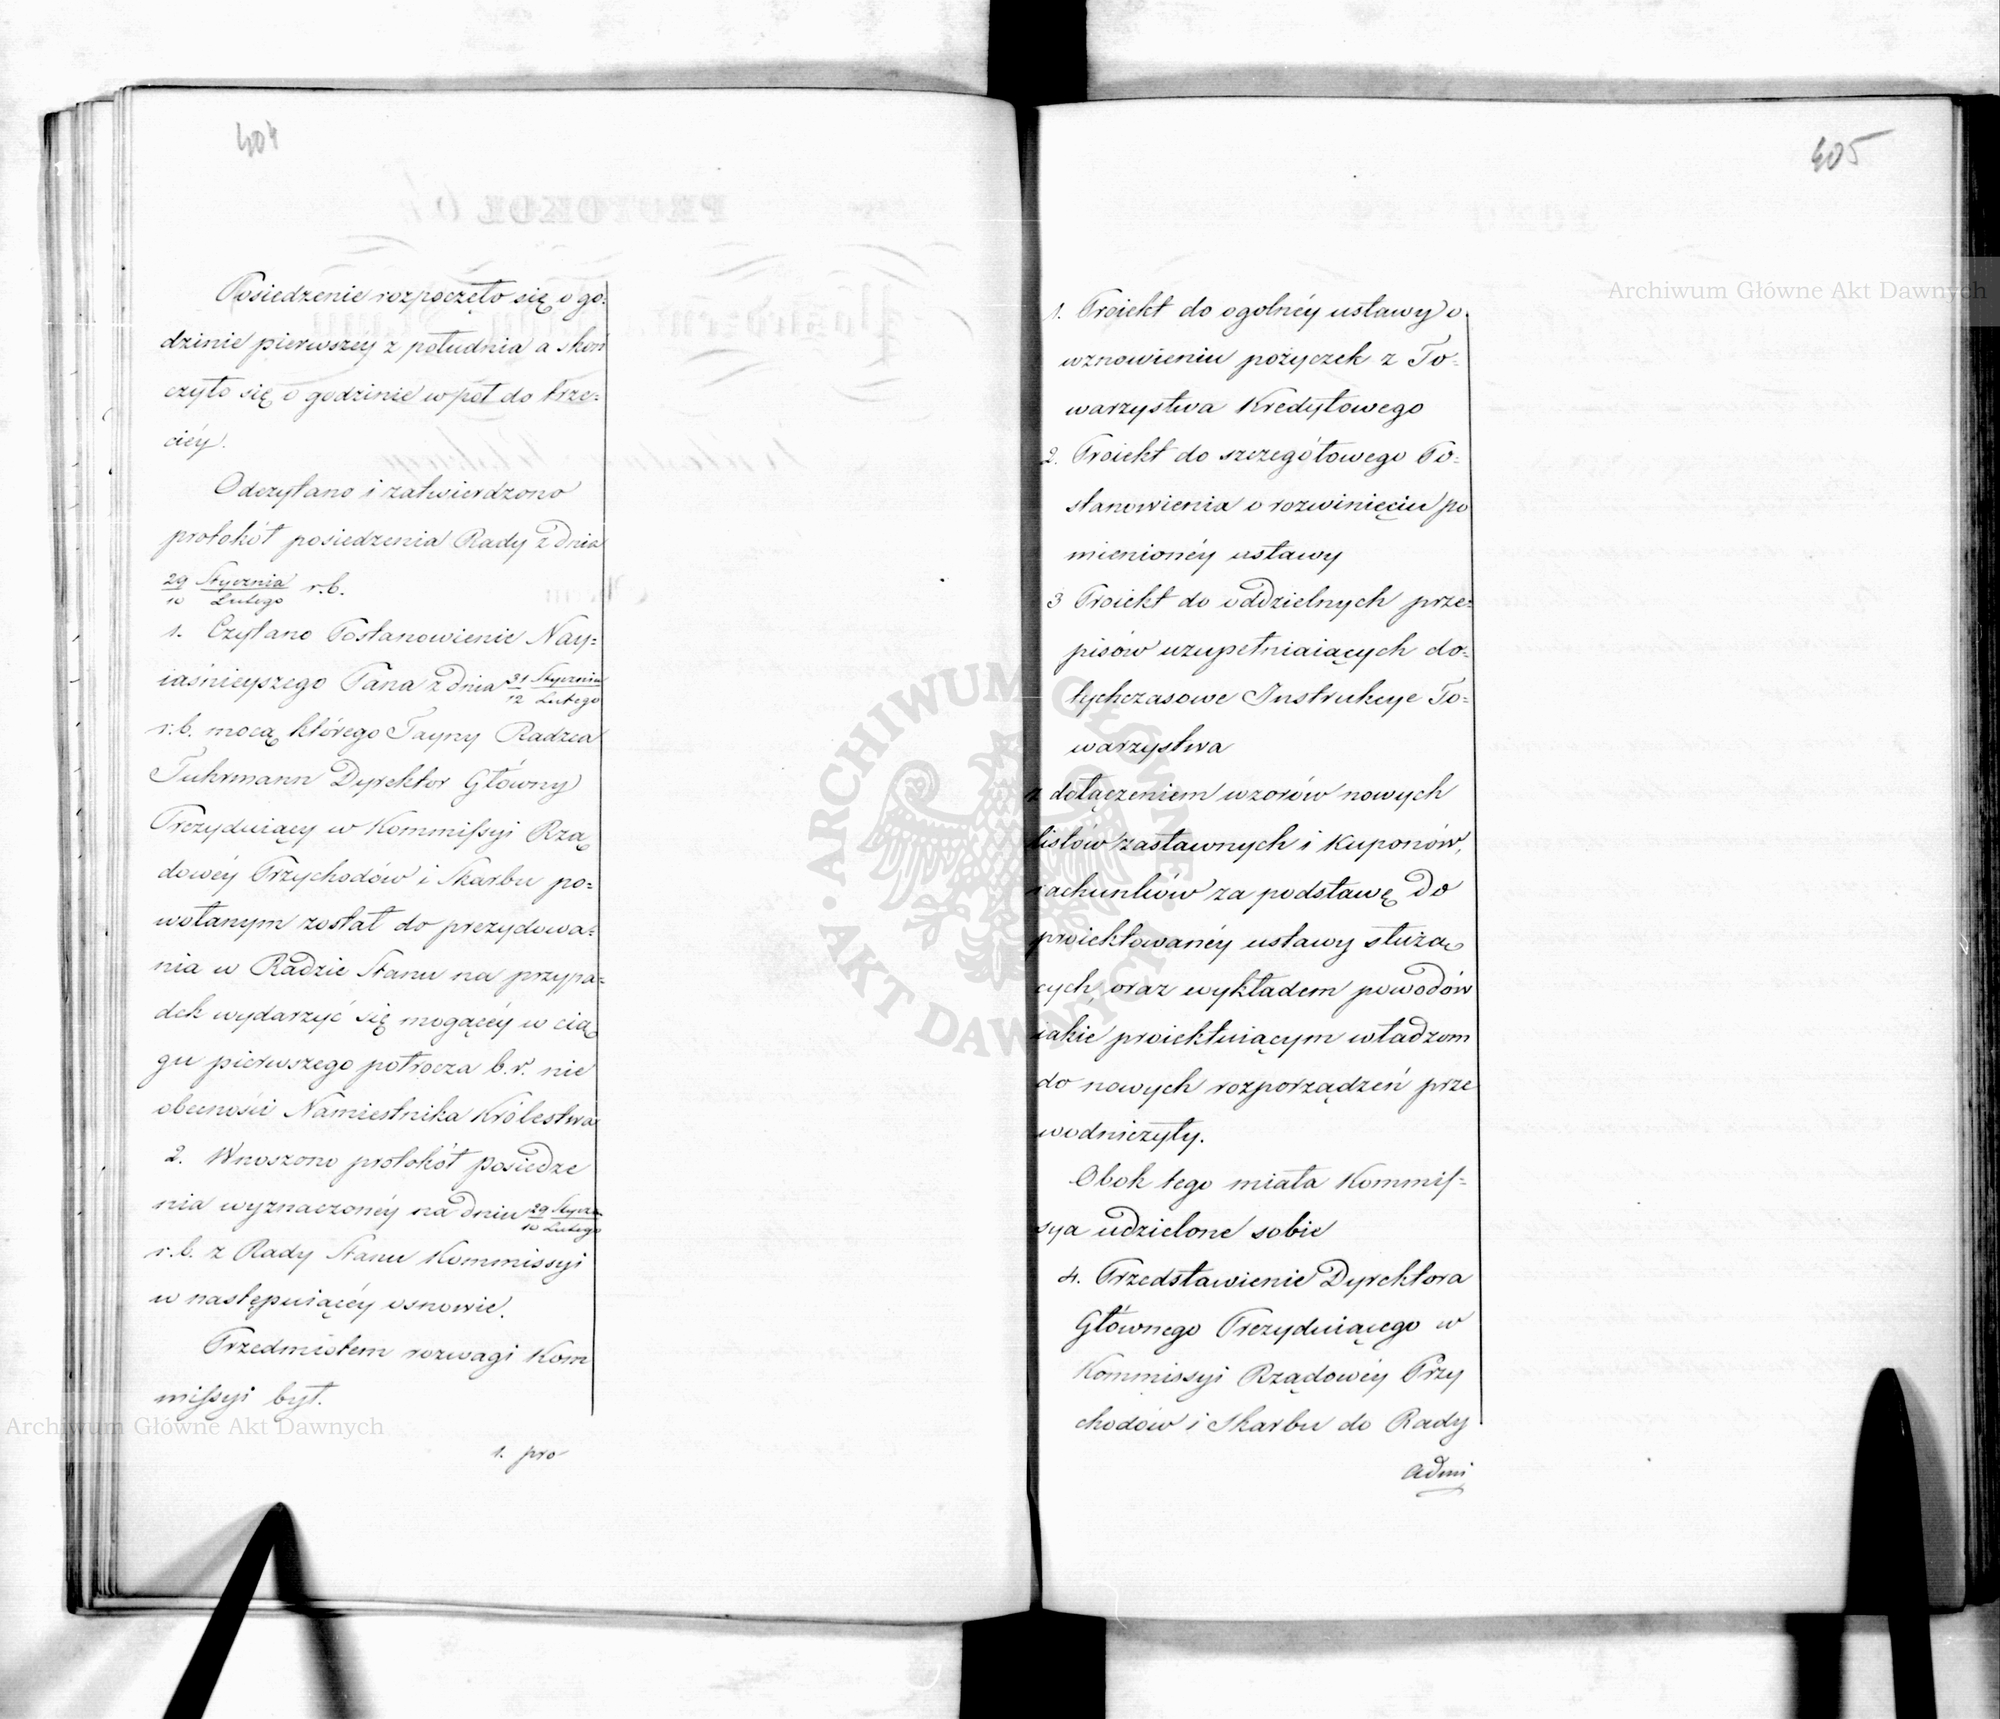 404
Posiedzenie rozpoczęło się o go=
dzinie pierwszéy z południa a skoń
czyło się o godzinie wpół do trze=
ciéy.
Odczytano i zatwierdzono
protokół posiedzenia Rady z dnia
29 Stycznia / 10 Lutego r.b.
1. Czytano Postanowienie Nay=
iaśnieyszego Pana z dnia 31 Stycznia / 12 Lutego
r.b. mocą którego Tayny Radzca
Fuhrmann Dyrektor Główny
Prezyduiący w Kommissyi Rzą
dowéy Przychodów i Skarbu po=
wołanym został do prezydowa=
nia w Radzie Stanu na przypa=
dek wydarzyć się mogącéy w cią
gu pierwszego półrocza b.r. nie
obecności Namiestnika Królestwa
2. Wnoszono protokół posiedze
nia wyznaczonéy na dniu 29 Stycz / 10 Lutego
r.b. z Rady Stanu Kommissyi
w następuiącéy osnowie.
Przedmiotem rozwagi Kom
missyi był.
1. pro
405
1. Proiekt do ogolnéy ustawy o
wznowieniu pożyczek z To=
warzystwa Kredytowego
2. Proiekt do szczegółowego Po=
stanowienia o rozwinięciu po
mienionéy ustawy
3 Proiekt do oddzielnych prze=
pisów uzupełniaiących do=
tychczasowe Instrukcye To=
warzystwa
z dołączeniem wzorów nowych
listów zastawnych i kuponów,
rachunków za podstawę do
proiektowanéy ustawy służą
cych, oraz wykładem powodów
iakie proiektuiącym władzom
do nowych rozporządzeń prze
wodniczyły.
Obok tego miała Kommis=
sya udzielone sobie
4. Przedstawienie Dyrektora
Głównego Prezyduiącego w
Kommissyi Rządowéy Przy
chodów i Skarbu do Rady
Admi
Archiwum Główne Akt Dawnych
Archiwum Główne Akt Dawnych
ARCHIWUM GŁÓWNE
AKT DAWNYCH